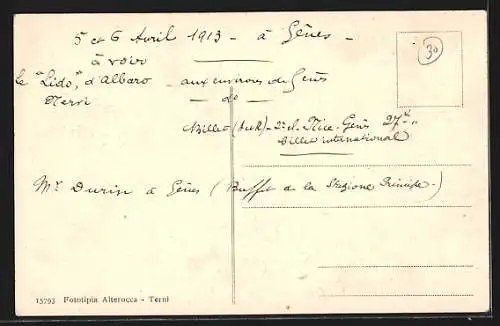 5 et 6 Avril 1913 - à Gênes -
à voir
Le "Lido", d'Albaro - aux environs de Gênes
Nervi - do -
Billet (A&R) - Nice - Gênes 27
billet international
Mr Durin à Gênes (Buffet de la Stazione Principe -)
30
15793 Fototipia Alterocca - Terni